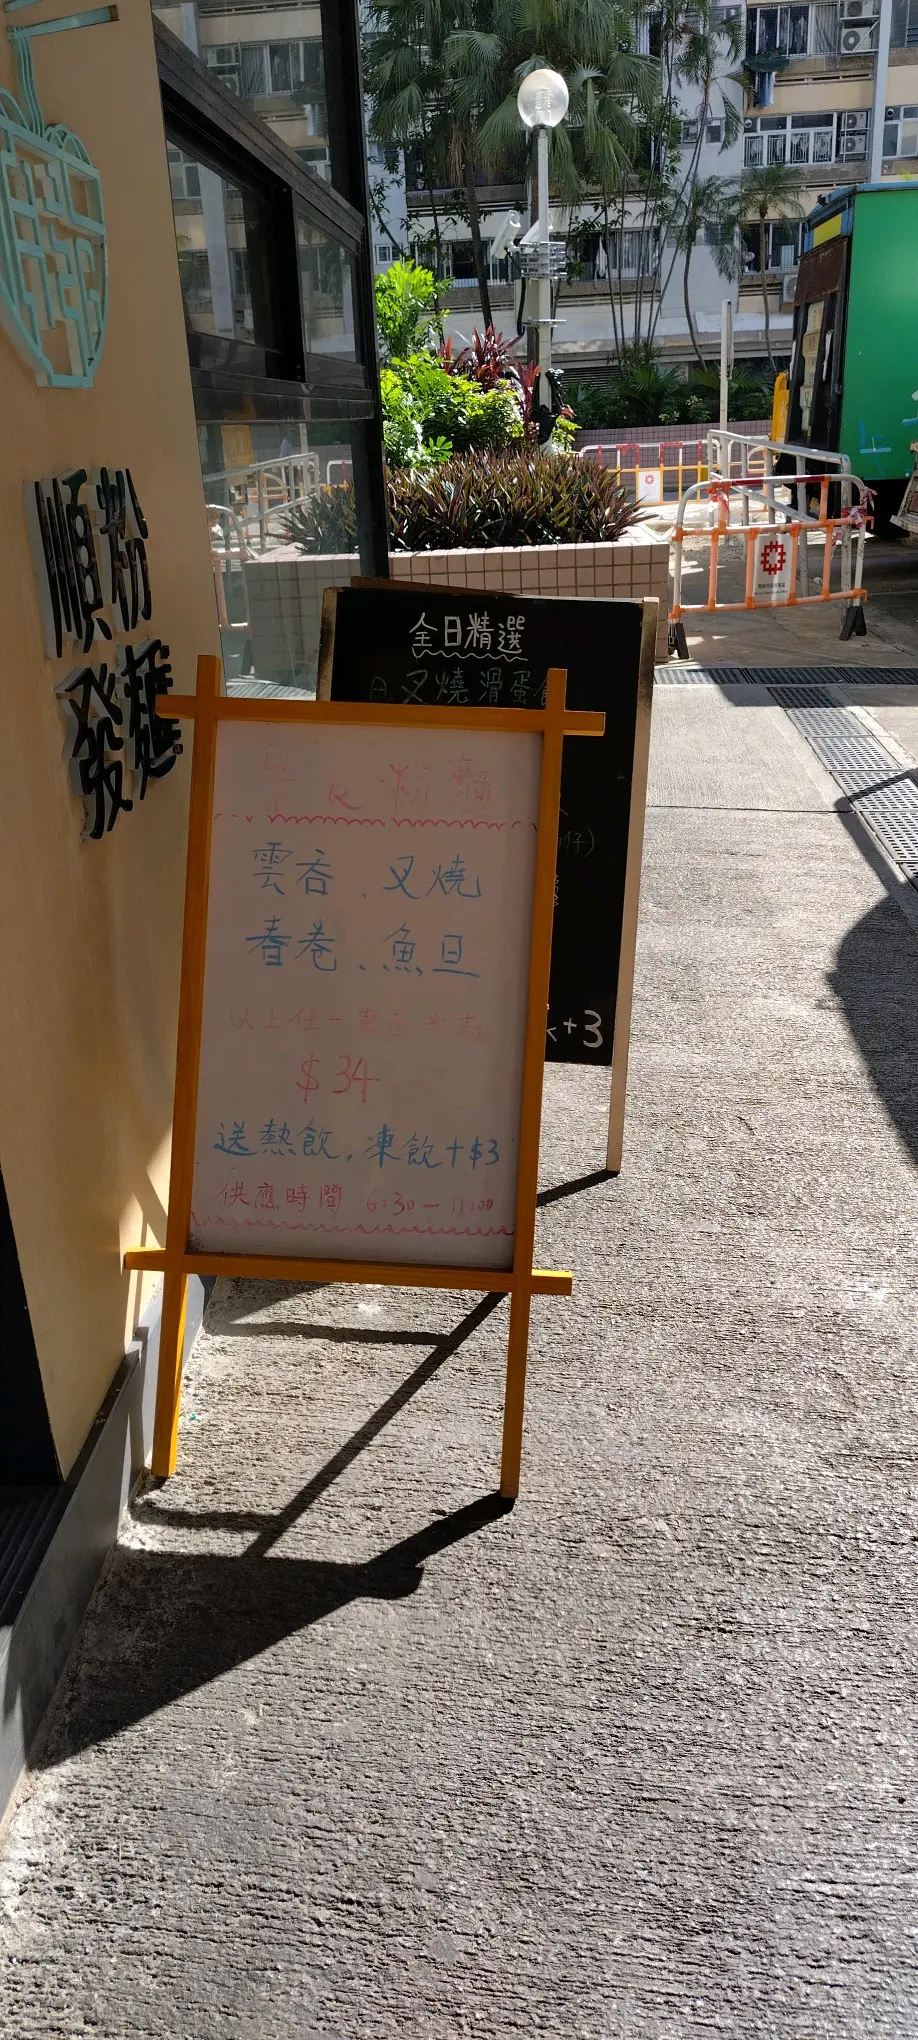 順粉
發麵
全日精選
叉燒滑蛋飯
仔)
+3
早晨粉麵
雲吞、叉燒
春卷、魚旦
以上任一
$34
送熱飲,凍飲+$3
供應時間 6:30—11:00